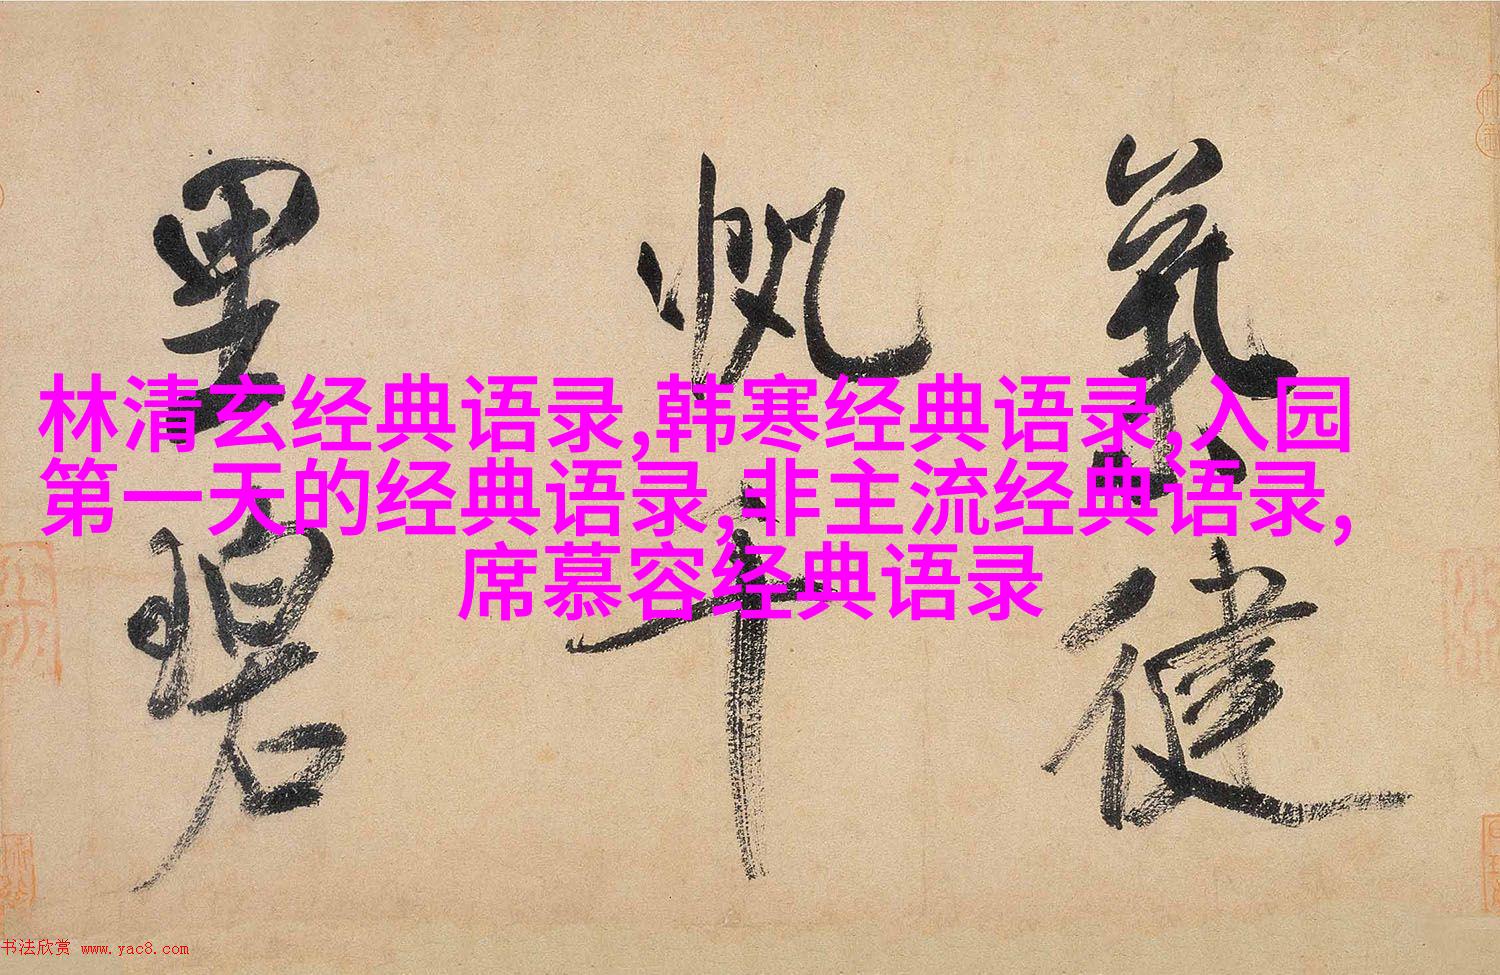 氣健
帆千
里碧
林清玄经典语录,韩寒经典语录,入园
第一天的经典语录,非主流经典语录,
席慕容经典语录
书法欣赏 www.yac8.com